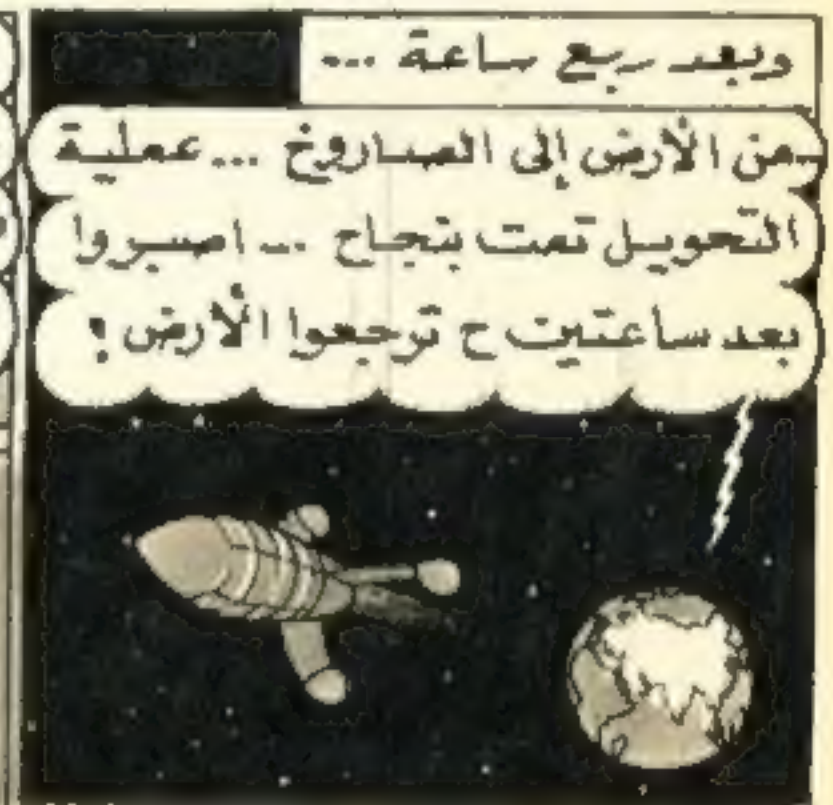 وبعد ربع ساعة ...
من الأرض إلى الصاروخ ... عملية
التحويل تمت بنجاح ... اصبروا
بعد ساعتين ح ترجعوا الأرض !